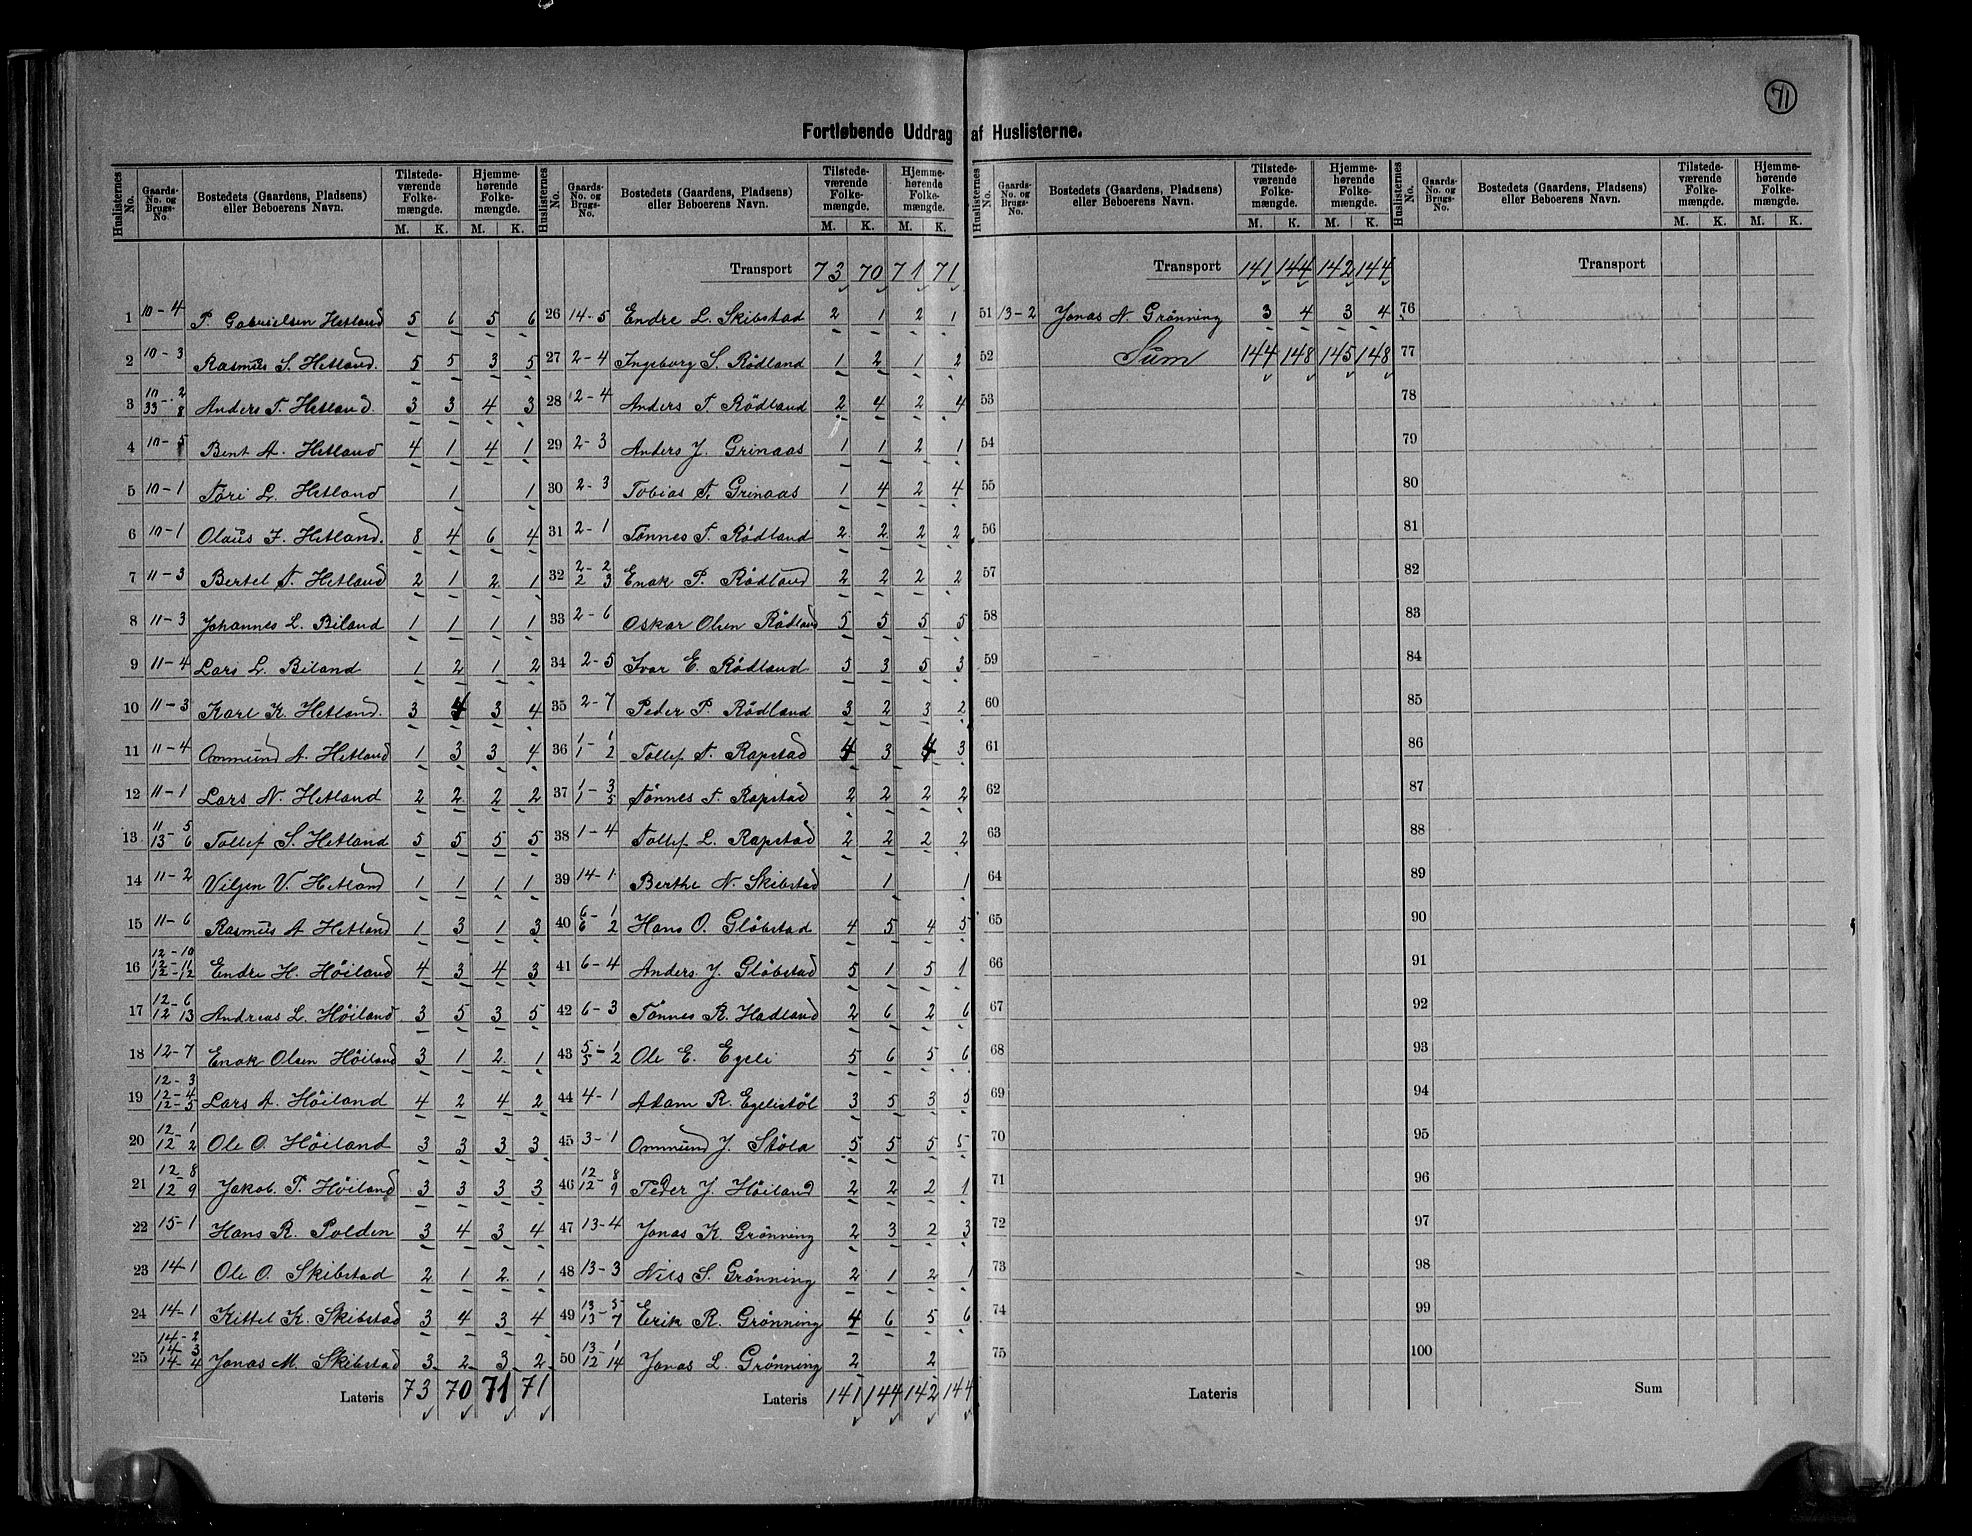 71
Fortløbende Uddrag af Huslisterne.
Huslisternes No. Gaards-No. og Brugs-No. Bostedets (Gaardens, Pladsens) eller Beboerens Navn. Tilstedeværende Folkemængde. M. K. Hjemmehørende Folkemængde. M. K.
1 10-4 P. Gabrielsen Hetland 5 6 5 6
2 10-3 Rasmus S. Hetland. 5 5 3 5
3 10-2 33-8 Anders T. Hetland 3 3 4 3
4 10-5 Bent A. Hetland 4 1 4 1
5 10-1 Tori L. Hetland 1 1
6 10-1 Olaus F. Hetland. 8 4 6 4
7 11-3 Bertel T. Hetland 2 1 2 1
8 11-3 Johannes L. Biland 1 1 1 1
9 11-4 Lars L. Biland 1 2 1 2
10 11-3 Karl K. Hetland. 3 4 3 4
11 11-4 Ommund A. Hetland 1 3 3 4
12 11-1 Lars N. Hetland 2 2 2 2
13 11-5 13-6 Tollef S. Hetland 5 5 5 5
14 11-2 Viljen V. Hetland 1 1 1 1
15 11-6 Rasmus A Hetland 1 3 1 3
16 12-10 12-11 12-12 Endre H. Höiland 4 3 4 3
17 12-6 12 13 Andreas L. Höiland 3 5 3 5
18 12-7 Enok Olsen Höiland 3 1 2 1
19 12-3 12-4 12-5 Lars A. Höiland 4 2 4 2
20 12-1 12-2 Ole O. Höiland 3 3 3 3
21 12 8 12-9 Jakob. P. Höiland 3 3 3 3
22 15-1 Hans R. Polden 3 4 3 4
23 14-1 Ole O. Skibstad 2 1 2 1
24 14-1 Kittel K. Skibstad 3 4 3 4
25 14-2 14-3 14-4 Jonas M. Skibstad 3 2 3 2
Lateris 73 70 71 71
Huslisternes No. Gaards-No. og Brugs-No. Bostedets (Gaardens, Pladsens) eller Beboerens Navn. Tilstedeværende Folkemængde. M. K. Hjemmehørende Folkemængde. M. K.
Transport 73 70 71 71
26 14-5 Endre L. Skibstad 2 1 2 1
27 2-4 Ingeborg S. Rödland 1 2 1 2
28 2-4 Anders T. Rödland 2 4 2 4
29 2-3 Anders J. Grinaas 1 1 2 1
30 2-3 Tobias A. Grinaas 1 4 2 4
31 2-1 Tönnes T. Rödland 2 2 2 2
32 2-2 2 3 Enok P. Rödland 2 2 2 2
33 2-6 Oskar Olsen Rödland 5 5 5 5
34 2-5 Ivar E. Rödland 5 3 5 3
35 2-7 Peder P. Rödland 3 2 3 2
36 1-1 1 2 Tollef T. Rapstad 4 3 4 3
37 1-3 1 5 Tönnes T. Rapstad 2 2 2 2
38 1-4 Tollef L. Rapstad 2 2 2 2
39 14-1 Berthe N. Skibstad 1 1
40 6-1 6 2 Hans O. Glöbstad 4 5 4 5
41 6-4 Anders J. Glöbstad 5 1 5 1
42 6-3 Tönnes R. Hadland 2 6 2 6
43 5-1 5 2 Ole E. Egeli 5 6 5 6
44 4-1 Adam R. Egelistöl 3 5 3 5
45 3-1 Ommund J. Stöla 5 5 5 5
46 12-8 12 9 Peder J. Höiland 2 2 2 1
47 13-4 Jonas K Grönning 2 3 2 3
48 13-3 Nils S. Grönning 2 1 2 1
49 13-5 13 7 Erik R. Grönning 4 6 5 6
50 13-1 12 14 Jonas L. Grönning 2 2
Lateris 141 144 142 144
Huslisternes No. Gaards-No. og Brugs-No. Bostedets (Gaardens, Pladsens) eller Beboerens Navn. Tilstedeværende Folkemængde. M. K. Hjemmehørende Folkemængde. M. K.
Transport 141 144 142 144
51 13-2 Jonas N. Grönning 3 4 3 4
52 Sum 144 148 145 148
53
54
55
56
57
58
59
60
61
62
63
64
65
66
67
68
69
70
71
72
73
74
75
Lateris
Huslisternes No. Gaards-No. og Brugs-No. Bostedets (Gaardens, Pladsens) eller Beboerens Navn. Tilstedeværende Folkemængde. M. K. Hjemmehørende Folkemængde. M. K.
Transport
76
77
78
79
80
81
82
83
84
85
86
87
88
89
90
91
92
93
94
95
96
97
98
99
100
Sum